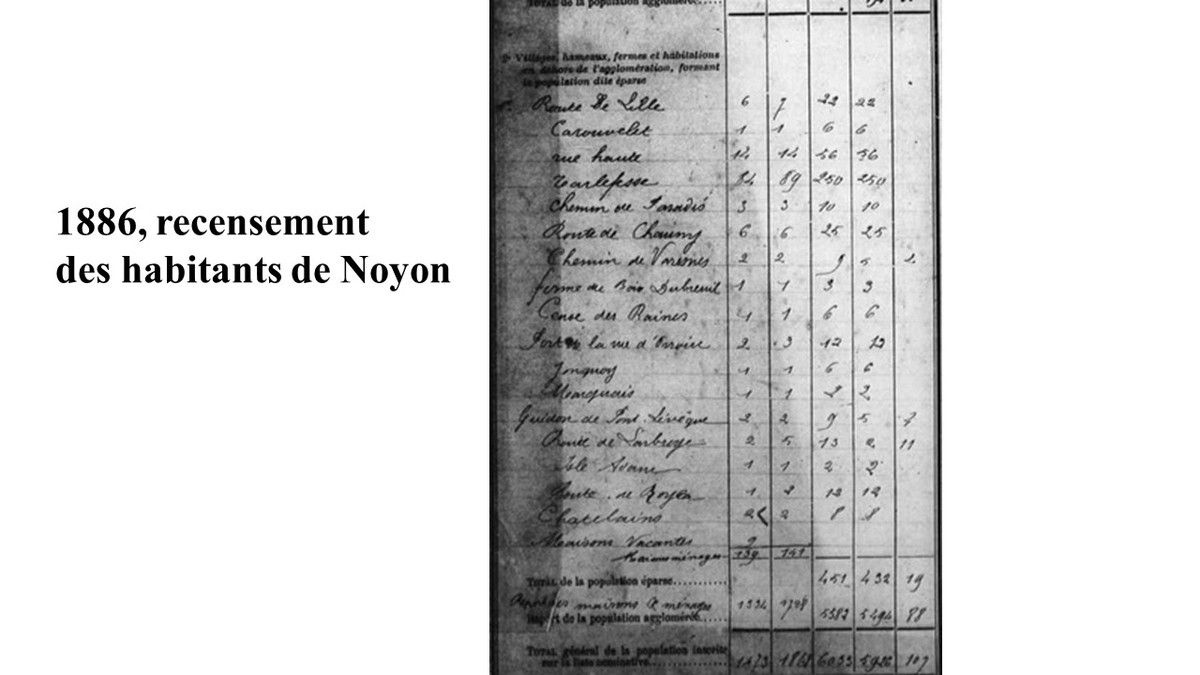 1886, recensement
des habitants de Noyon
TOTAL de la population agglomérée.....
2° Villages, hameaux, fermes et habitations
en dehors de l'agglomération, formant
la population dite éparse
Route De Lille 6 7 22 22
Carouvelet 1 1 6 6
rue haute 14 14 56 56
Tarlefesse 84 89 250 250
Chemin de Paradis 3 3 10 10
Route de Chauny 6 6 25 25
Chemin de Varesnes 2 2 9 5
ferme de Bois Dubreuil 1 1 3 3
Cense des Raines 1 1 6 6
la rue d'Orroire 2 3 12 12
Jonquoy 1 1 6 6
Marquais 1 1 2 2
Guidon de Pont Lévêque 2 2 9 5 7
Route de 2 5 13 2 11
Isle Adam 1 1 2 2
Route de Roye 1 2 12 12
Chatelains 2 2 8 8
Maisons Vacantes 9
ménages 139 141
TOTAL de la population éparse........... 451 432 19
maisons & ménages 1334
Report de la population agglomérée...... 5582 5494 88
TOTAL général de la population inscrite
sur la liste nominative............... 1473 6033 5926 107